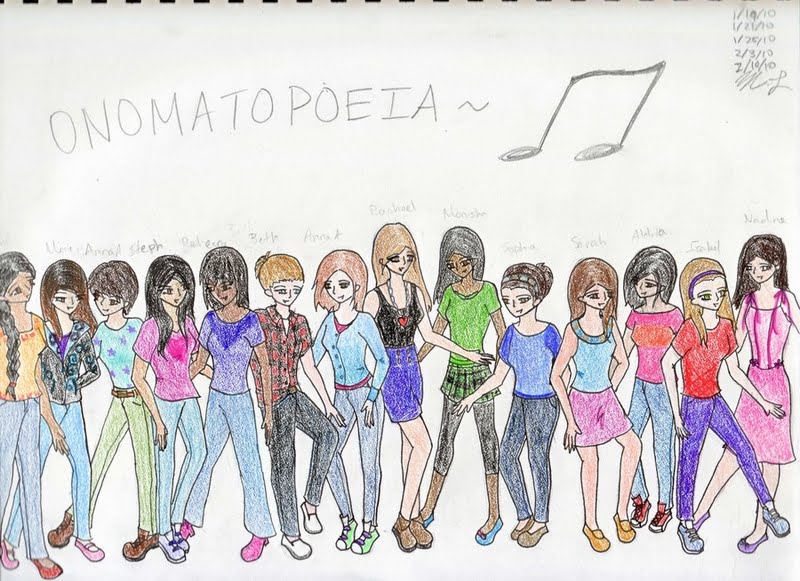 1/14/10
1/21/10
1/25/10
2/3/10
2/10/10
ONOMATOPOEIA ~
Anna A Steph Rebecca Beth Anna A Rachael Monisha Sophia Sarah Isabel Nadine